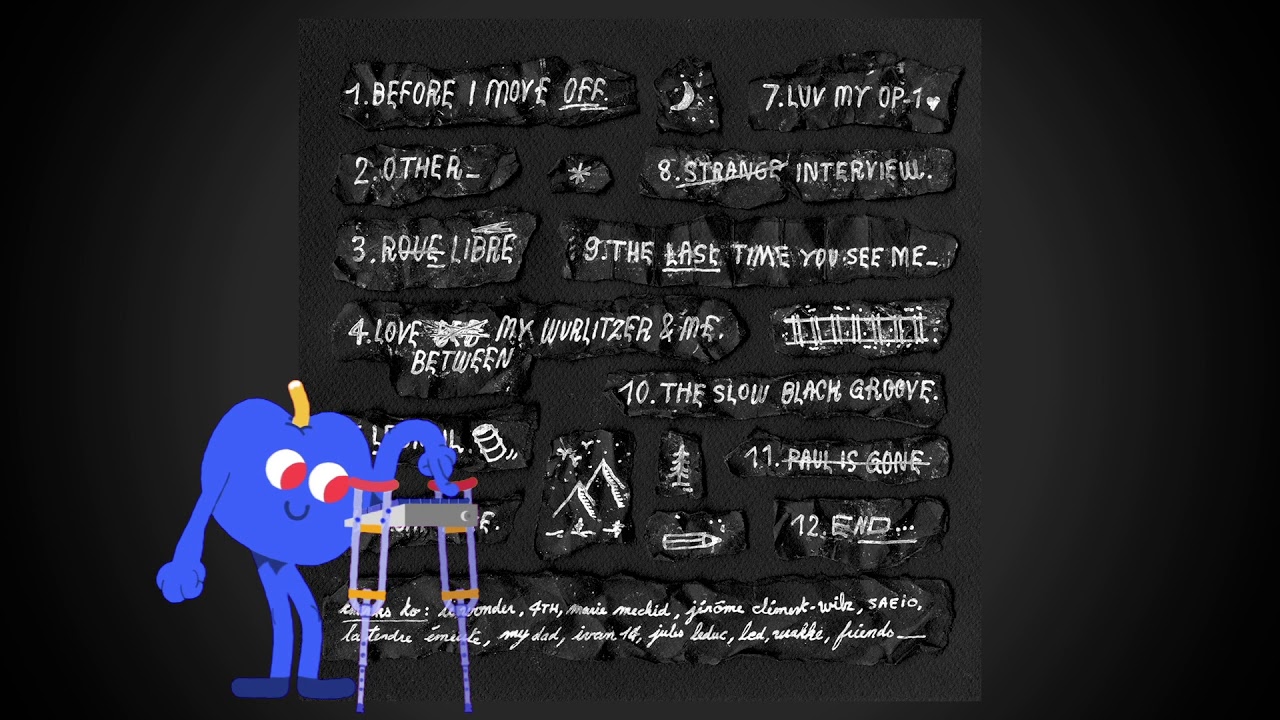 1. BEFORE I MOVE OFF.
2. OTHER_
3. ROUE LIBRE
4. LOVE MY WURLITZER & ME.
BETWEEN
7. LUV MY OP-1 ♥
8. STRANGE INTERVIEW.
9. THE LAST TIME YOU SEE ME_
10. THE SLOW BLACK GROOVE.
11. PAUL IS GONE
12. END...
to: wonder, 4TH, marie mechid, jérôme clément-wilz, SAEIO,
la tendre émeute, my dad, ivan 14, jules leduc, led, friends